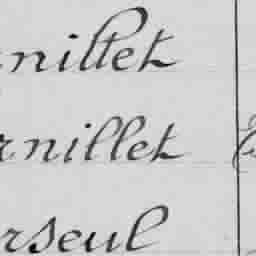 nillet
rnillet
rseul